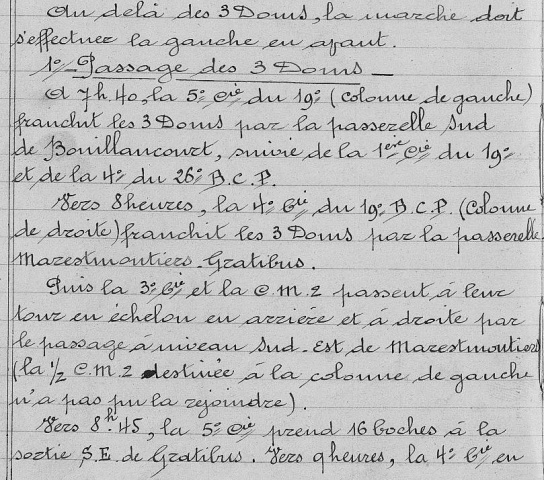 Au delà des 3 Doms, la marche doit
s'effectuer la gauche en avant.
1º - Passage des 3 Doms -
A 7h.40, la 5e Cie du 19e (colonne de gauche)
franchit les 3 Doms par la passerelle Sud
de Bouillancourt, suivie de la 1ère Cie du 19e
et de la 4e du 26e B.C.P.
Vers 8 heures, la 4e Cie du 19e B.C.P. (Colonne
de droite) franchit les 3 Doms par la passerelle
Marestmoutiers-Gratibus.
Puis la 3e Cie et la C.M.2 passent à leur
tour en échelon en arrière et à droite par
le passage à niveau Sud-Est de Marestmoutiers
(la 1/2 C.M.2 destinée à la colonne de gauche
n'a pas pu la rejoindre).
Vers 8h.45, la 5e Cie prend 16 boches à la
sortie S.E. de Gratibus. Vers 9 heures, la 4e Cie en